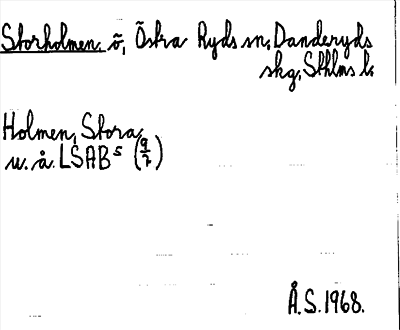 Storholmen, ö, Östra Ryds sn, Danderyds
skg, Sthlms l.
Holmen, Stora
u. å. LSAB⁵ (9/7)
Å.S. 1968.